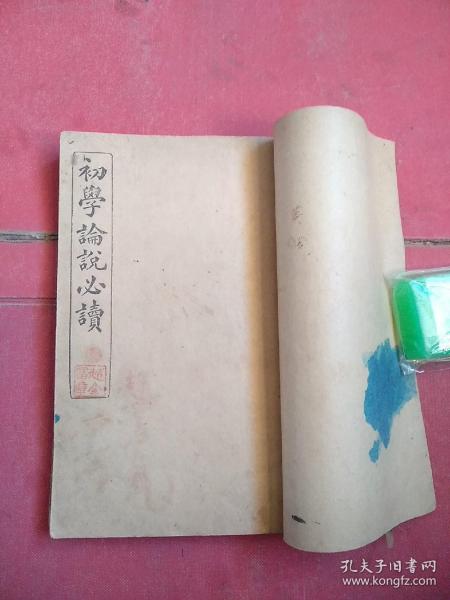 初學論說必讀
孔夫子旧书网
www.kongfz.com